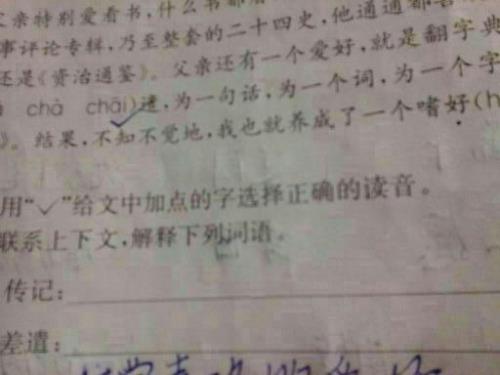 父亲特别爱看书,什么书都
事评论专辑,乃至整套的二十四史,他通通都
还是《资治通鉴》。父亲还有一个爱好,就是翻字典
chà chāi)遣,为一句话,为一个词,为一个字
》。结果,不知不觉地,我也就养成了一个嗜好(h
用“✓”给文中加点的字选择正确的读音。
联系上下文,解释下列词语。
传记:
差遣: